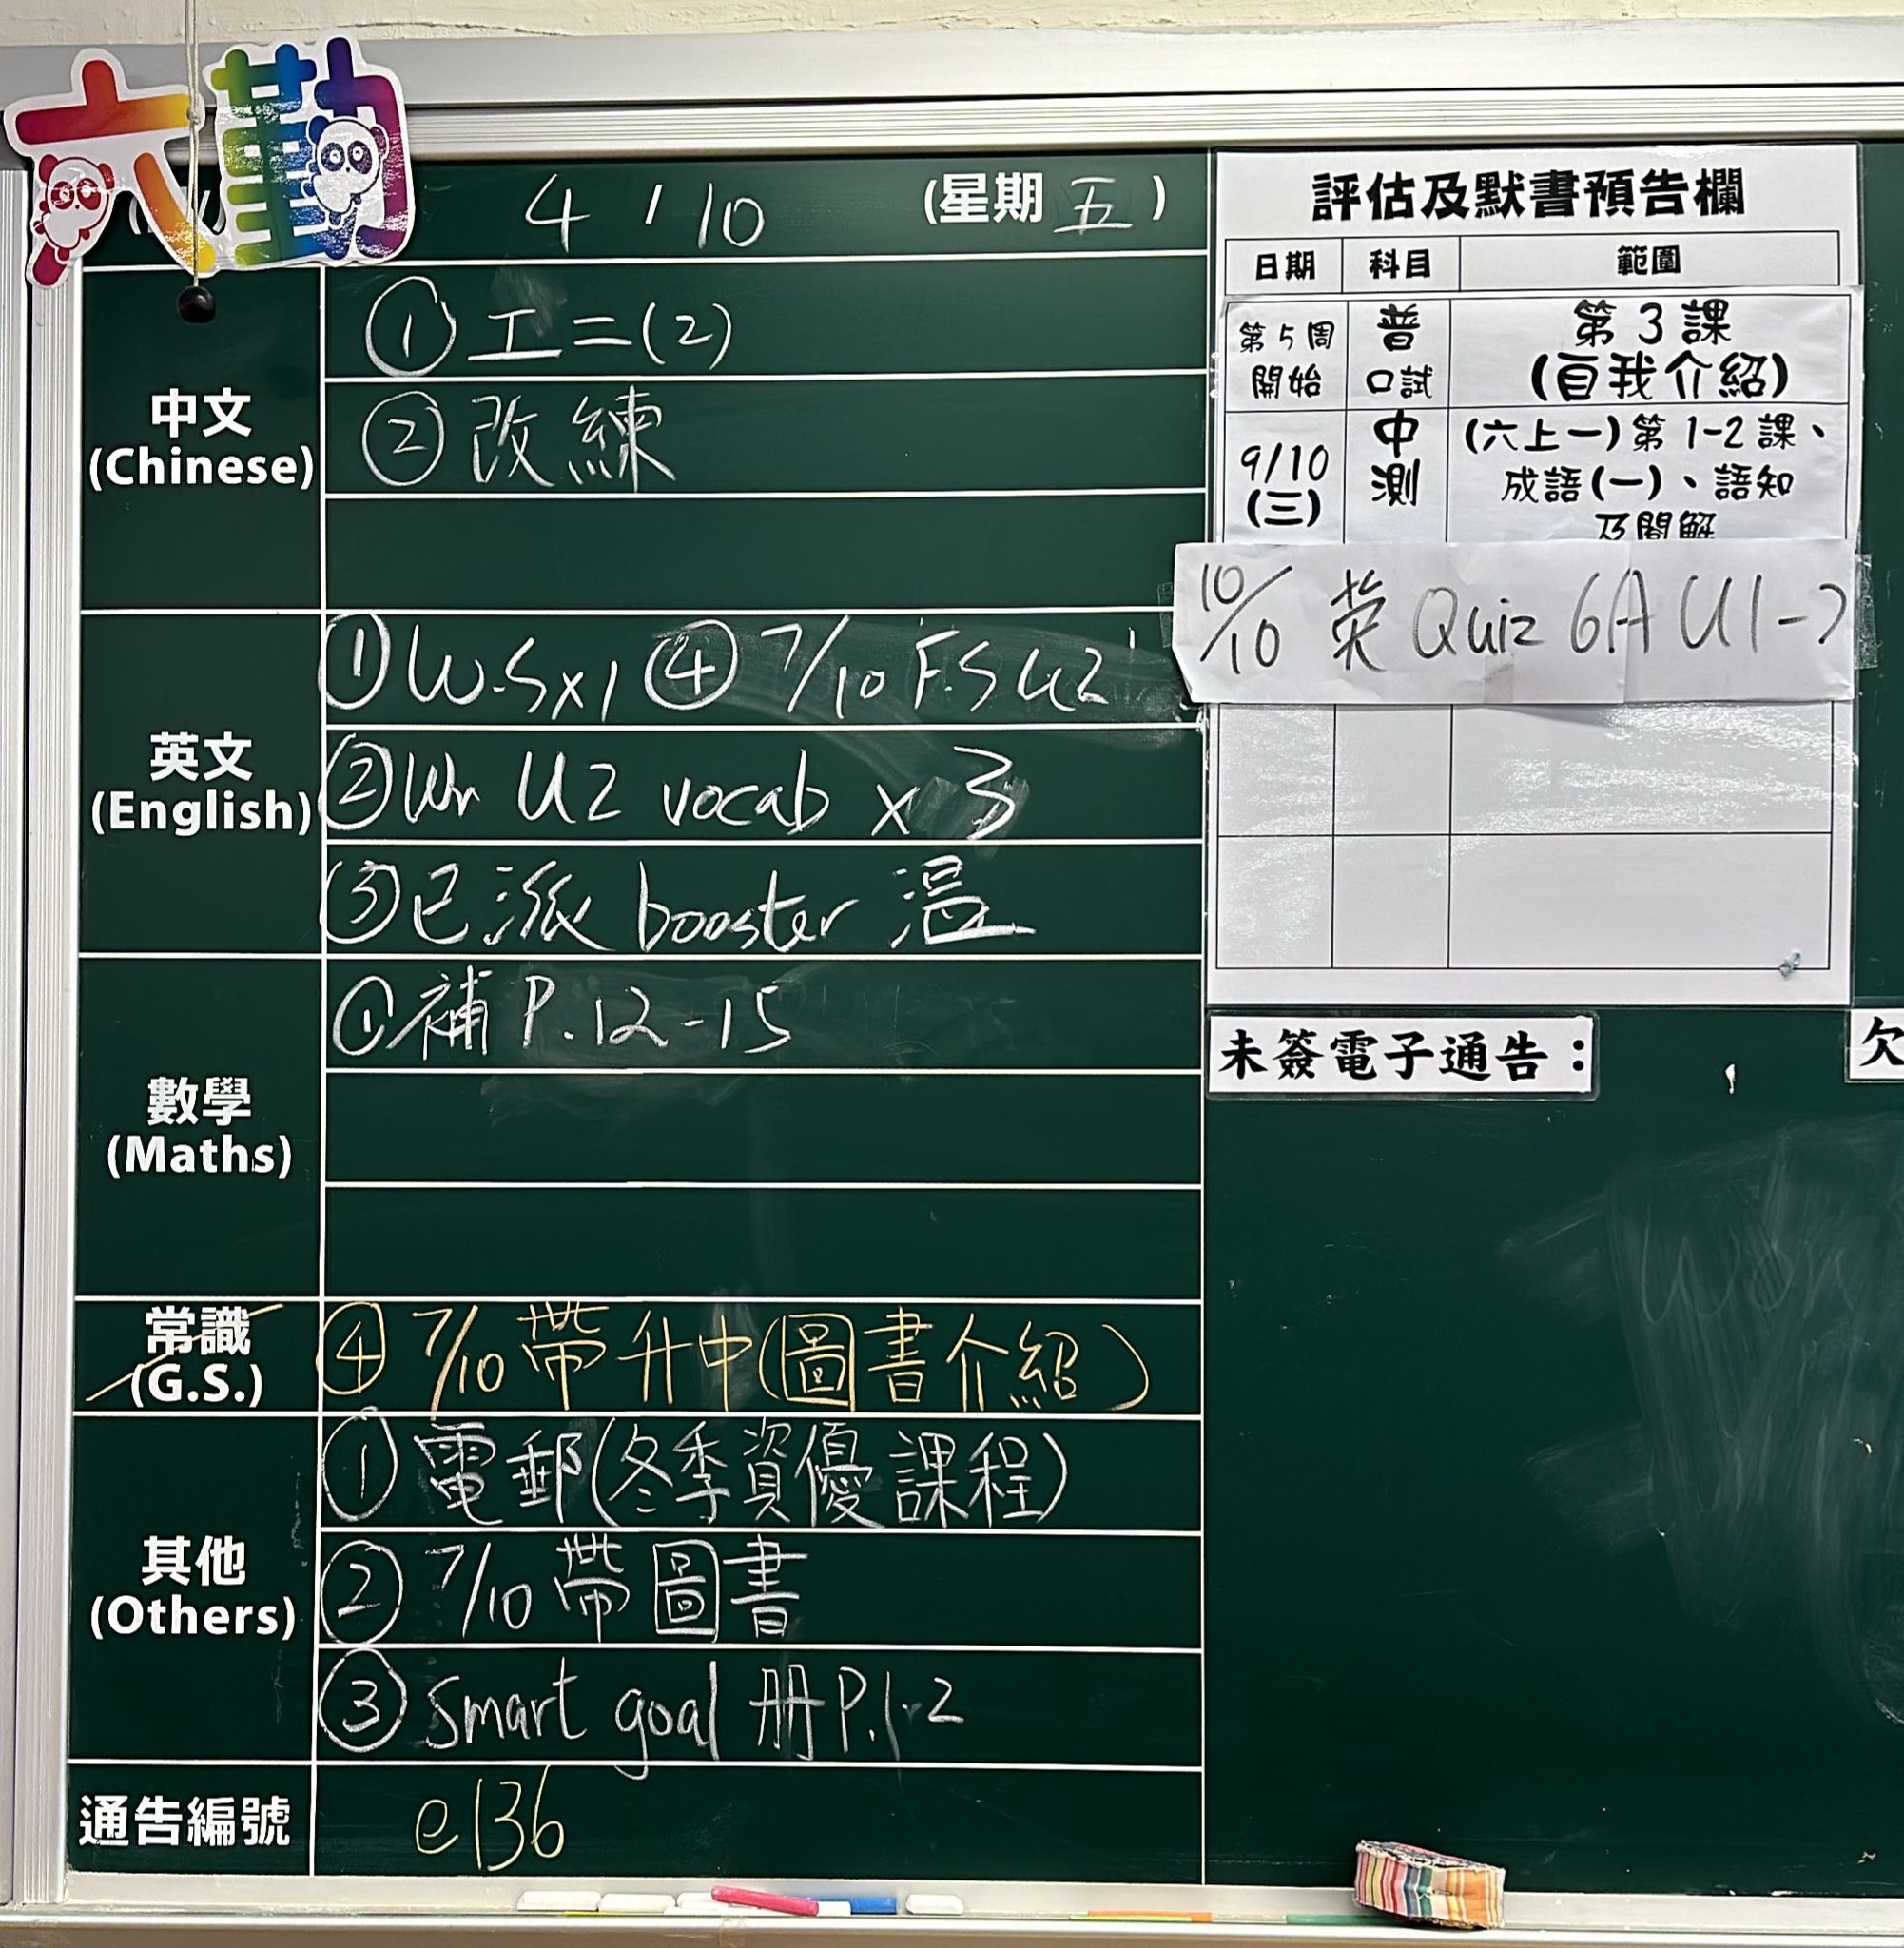 六勤
4 / 10 (星期 五 )
中文
(Chinese)
① 工二(2)
② 改練
英文
(English)
① W.S x 1 ④ 7/10 F.S U2
② Wr U2 vocab x 3
③ 已派 booster 溫
數學
(Maths)
① 補 P.12-15
常識
(G.S.)
④ 7/10 帶升中(圖書介紹)
其他
(Others)
① 電郵(冬季資優課程)
② 7/10 帶圖書
③ smart goal 冊 P.1-2
通告編號
e136
評估及默書預告欄
日期 科目 範圍
第5周開始 普口試 第3課(自我介紹)
9/10(三) 中測 (六上一)第1-2課、
成語(一)、語知
及閱解
10/10 英 Quiz 6A U1-2
未簽電子通告：
欠